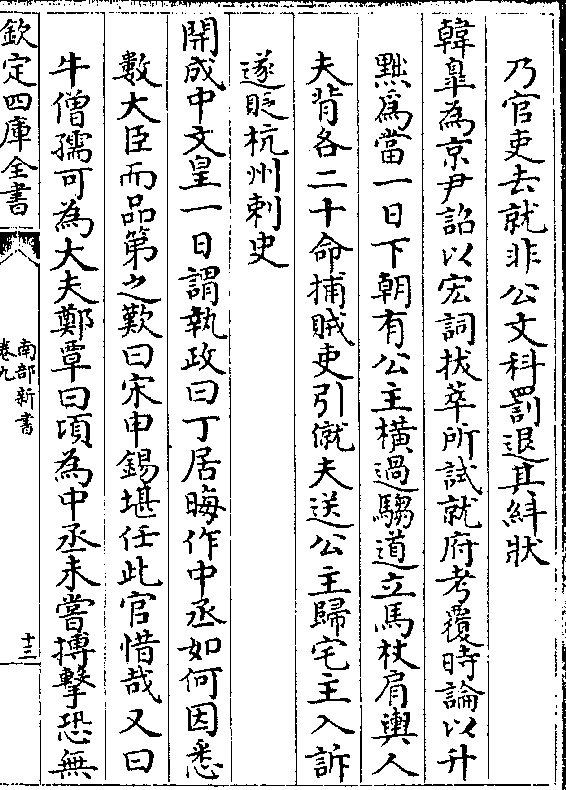 乃官吏去就非公文科罰退其紏狀
韓臯為京尹詔以宏詞拔萃所試就府考覆時論以升
黜爲當一日下朝有公主横過騶道立馬杖肩輿人
夫背各二十命捕賊吏引僦夫送公主歸宅主入訴
遂貶杭州刺史
開成中文皇一日謂執政曰丁居晦作中丞如何因悉
數大臣而品第之歎曰宋申錫堪任此官惜哉又曰
牛僧孺可為大夫鄭覃曰頃為中丞未嘗搏擊恐無
欽定四庫全書
南部新書
卷九
十三